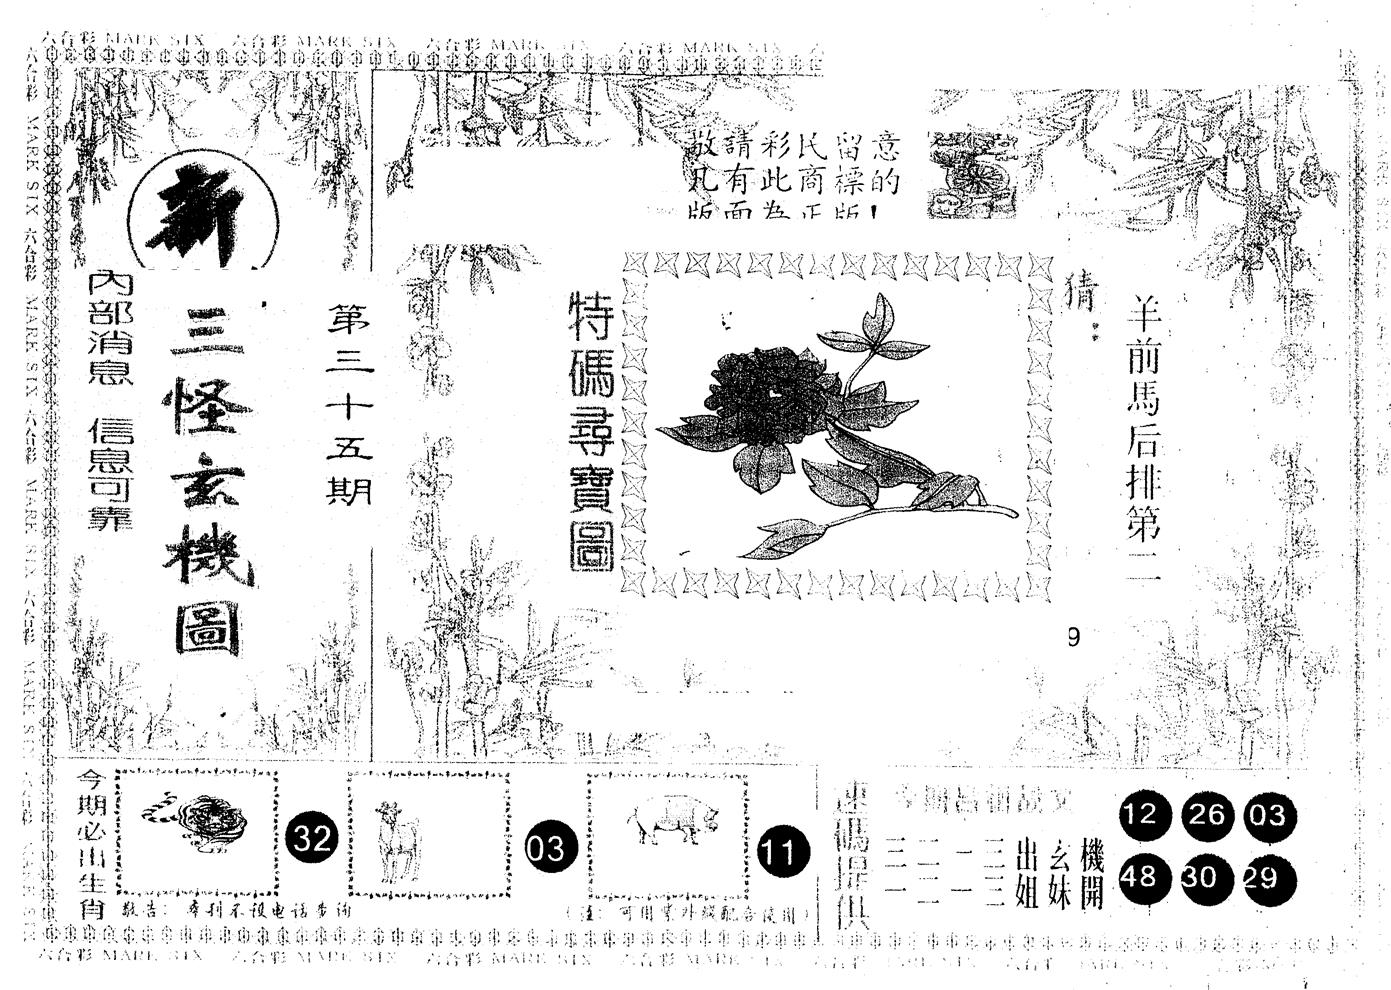 六合彩 MARK SIX 六合彩 MARK SIX 六合彩 MARK SIX 六合彩 MARK SIX 六
新
三怪玄機圖
內部消息 信息可靠
第三十五期
敬請彩民留意
凡有此商標的
版面為正版!
特碼尋寶圖
猜:
羊前馬后排第二
9
今期必出生肖
32
03
11
敬告:本刊不设电话咨询
(注:可用紫外線配合使用)
速碼提供
三二一三出玄機
一二一三姐妹開
12 26 03
48 30 29
六合彩 MARK SIX 六合彩 MARK SIX 六合彩 MARK SIX 六合彩 MARK SIX